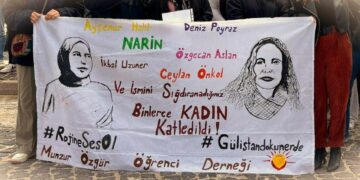 Ayşenur Halil Deniz Poyraz
NARİN
İkbal Uzuner Özgecan Aslan
Ceylan Önkol
Ve İsmini Sığdıramadığımız
Binlerce KADIN
Katledildi!
#RojineSesOl #Gülistandokunerde
Munzur Özgür Öğrenci Derneği